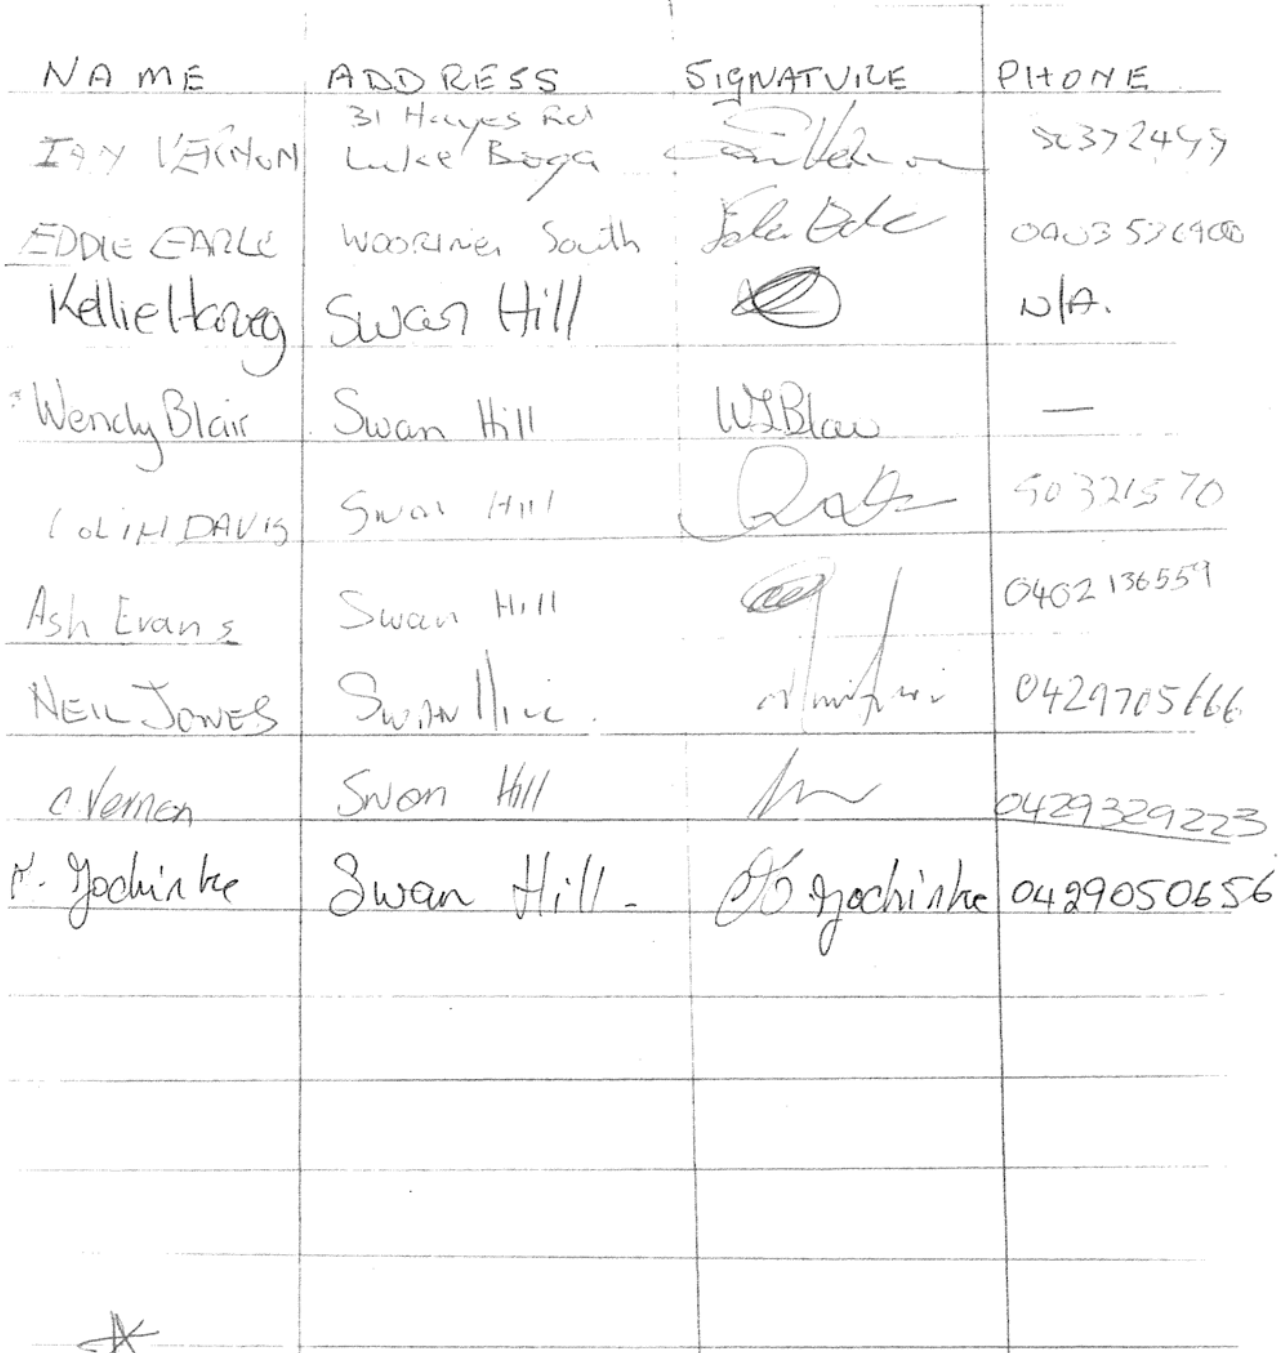 NAME ADDRESS SIGNATURE PHONE
31 Hayes Rd
IAN VERNON Lake Boga
EDDIE EARLE Woorinen South
Kellie Swan Hill N/A.
Wendy Blair Swan Hill WJBlair —
COLIN DAVIS Swan Hill 50321570
Ash Evans Swan Hill 0402136559
NEIL JONES Swan Hill. 0429705666
C. Vernon Swan Hill 0429329223
K. Jochinke Swan Hill - Jochinke 0429050656